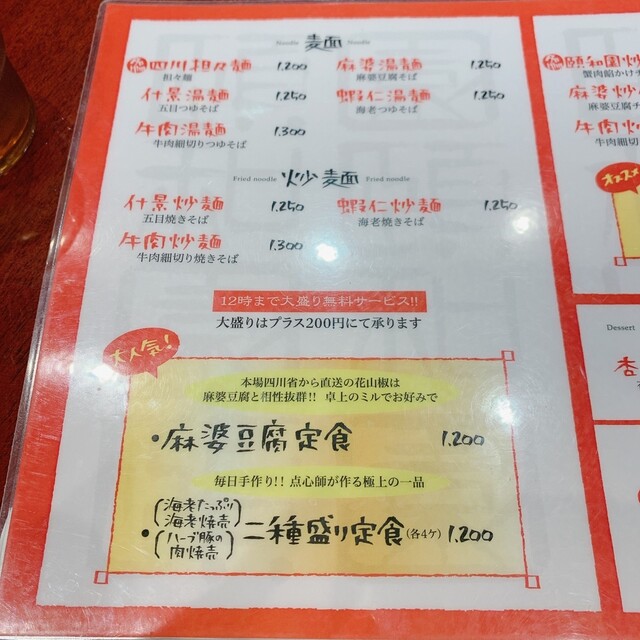 Noodle 麺 Noodle
四川担々麺 1.200
担々麺
麻婆湯麺 1.250
麻婆豆腐そば
什景湯麺 1.250
五目つゆそば
蝦仁湯麺 1.250
海老つゆそば
牛肉湯麺 1.300
牛肉細切りつゆそば
Fried noodle 炒麺 Fried noodle
什景炒麺 1.250
五目焼きそば
蝦仁炒麺 1.250
海老焼きそば
牛肉炒麺 1.300
牛肉細切り焼きそば
12時まで大盛り無料サービス!!
大盛りはプラス200円にて承ります
大人気!
本場四川省から直送の花山椒は
麻婆豆腐と相性抜群!! 卓上のミルでお好みで
・麻婆豆腐定食 1.200
毎日手作り!! 点心師が作る極上の一品
・(海老たっぷり海老焼売)(ハーブ豚の肉焼売)二種盛り定食(各4ケ) 1.200
頤和園炒
蟹肉餡かけチ
麻婆炒
麻婆豆腐チ
牛肉炒
牛肉細切
オススメ
Dessert
杏